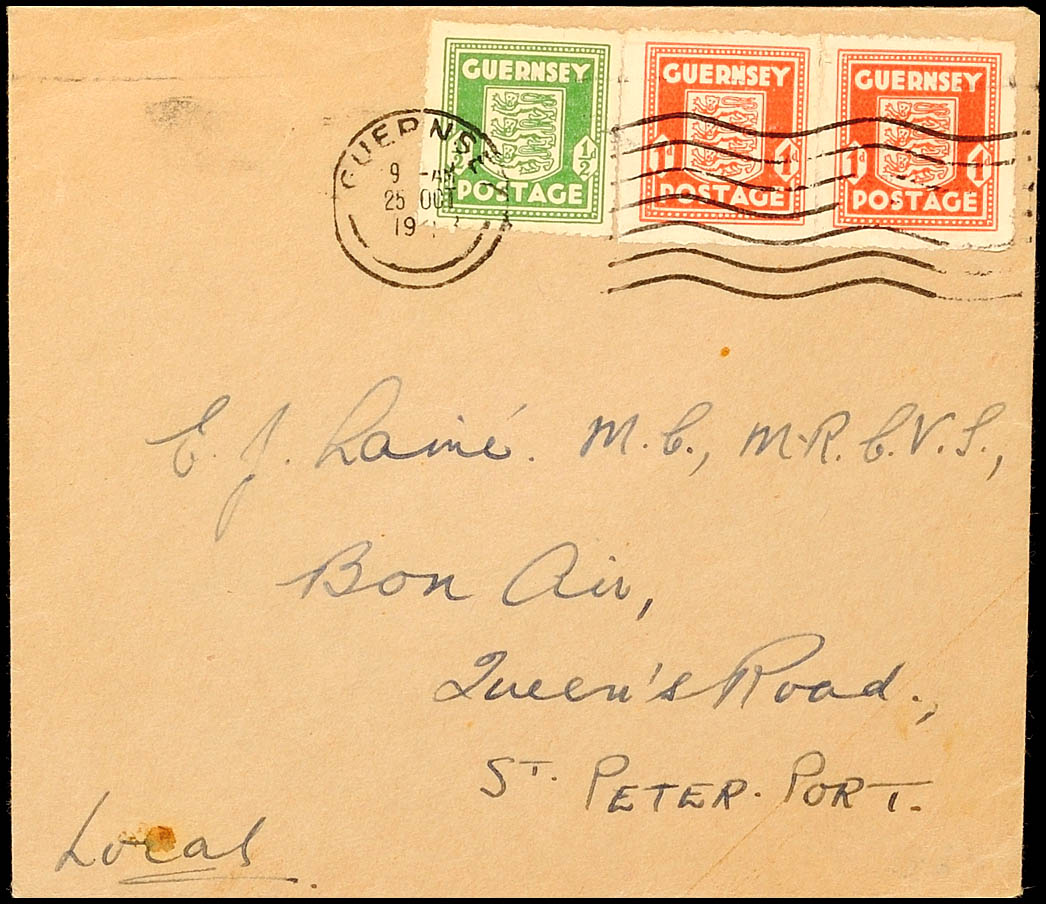 GUERNSEY
½d
POSTAGE
GUERNSEY
1d 1d
POSTAGE
GUERNSEY
1d 1d
POSTAGE
GUERNSE
9 - AM
25 OCT
19
E. J. Lainé. M.C., M.R.C.V.S.,
Bon Air,
Queen's Road.,
ST. PETER-PORT.
Local.